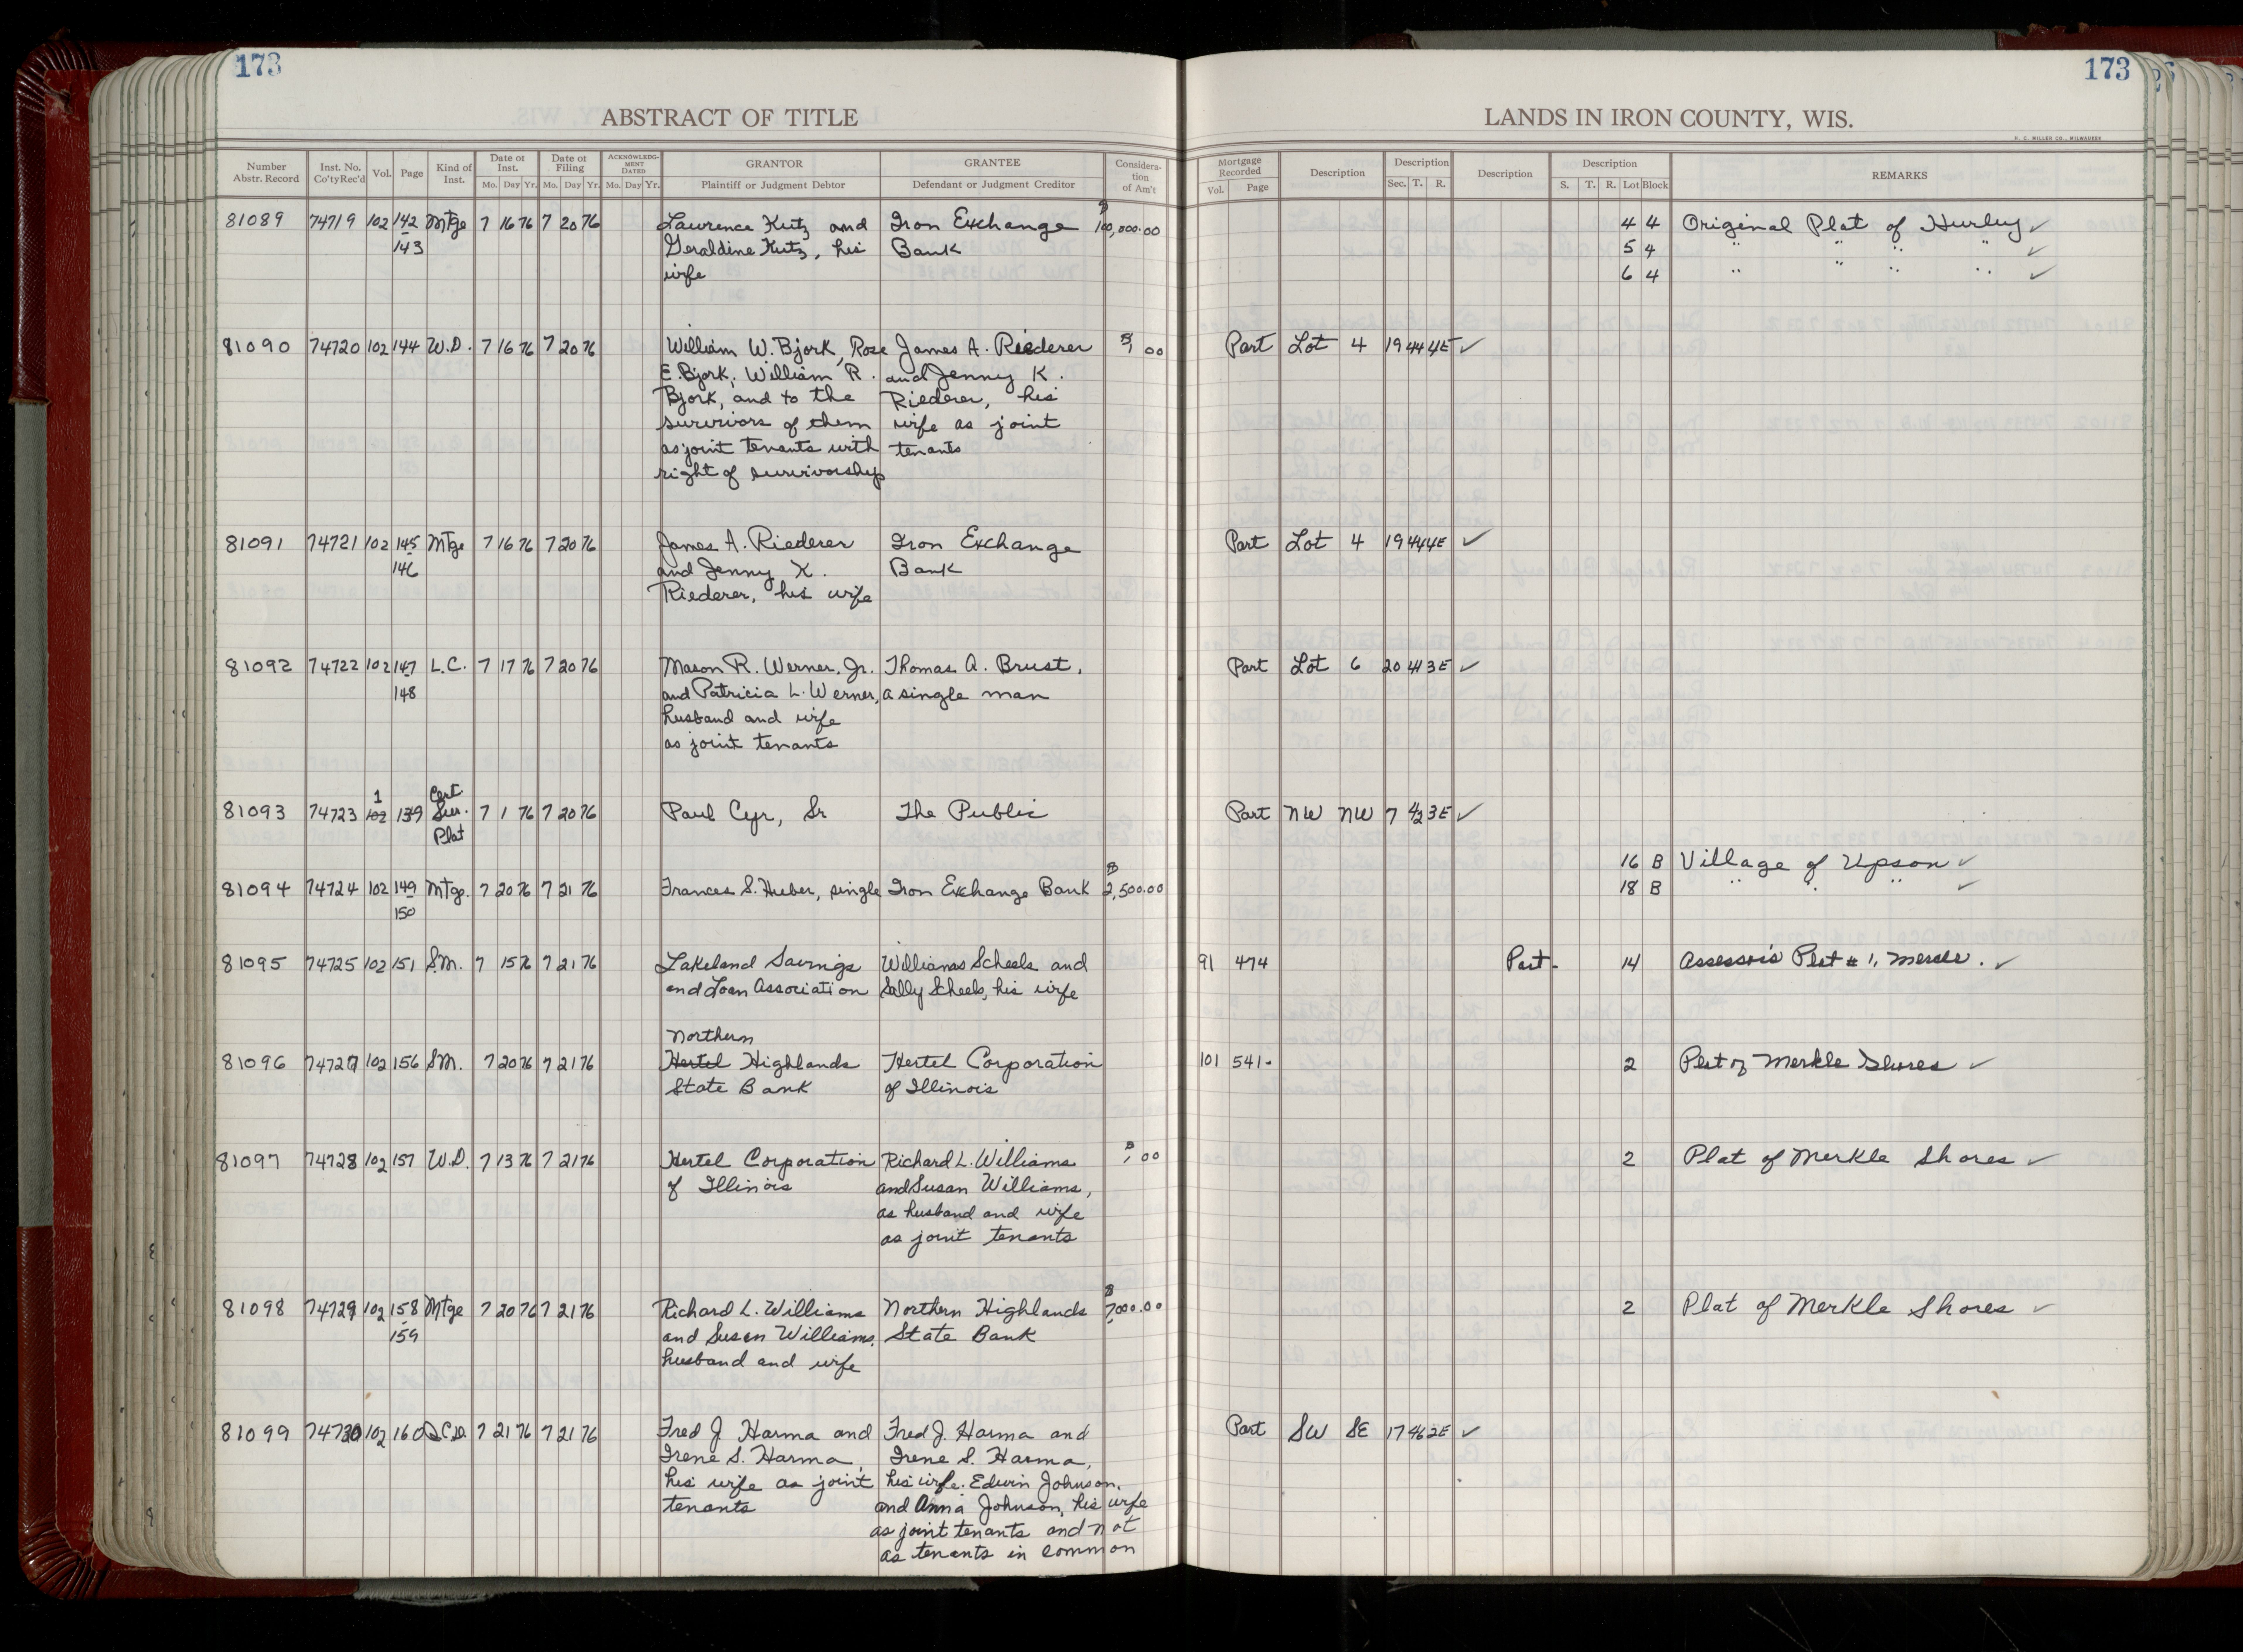 173
173
ABSTRACT OF TITLE
LANDS IN IRON COUNTY, WIS.
H. C. MILLER CO., MILWAUKEE
Number Abstr. Record Inst. No. Co'ty Rec'd Vol. Page Kind of Inst. Date of Inst. Mo. Day Yr. Date of Filing Mo. Day Yr. ACKNOWLEDGMENT DATED Mo. Day Yr. GRANTOR Plaintiff or Judgment Debtor GRANTEE Defendant or Judgment Creditor Consideration of Am't
Mortgage Recorded Vol. Page Description Description Sec. T. R. Description Description S. T. R. Lot Block REMARKS
81089 74719 102 142 Mtge 7 16 76 7 20 76 Lawrence Kutz and Iron Exchange $100,000.00 4 4 Original Plat of Hurley ✓
143 Geraldine Kutz, his Bank 5 4 " " " " ✓
wife 6 4 " " " " ✓
81090 74720 102 144 W.D. 7 16 76 7 20 76 William W. Bjork, Rose James A. Riederer $1 00 Part Lot 4 19 44 4E ✓
E. Bjork, William R. and Jenny K.
Bjork, and to the Riederer, his
survivors of them wife as joint
as joint tenants with tenants
right of survivorship
81091 74721 102 145 Mtge 7 16 76 7 20 76 James A. Riederer Iron Exchange Part Lot 4 19 44 4E ✓
146 and Jenny K. Bank
Riederer, his wife
81092 74722 102 147 L.C. 7 17 76 7 20 76 Mason R. Werner, Jr. Thomas A. Brust, Part Lot 6 20 41 3E ✓
148 and Patricia L. Werner, a single man
husband and wife
as joint tenants
1 Cert
81093 74723 102 139 Sur. 7 1 76 7 20 76 Paul Cyr, Sr The Public Part NW NW 7 42 3E ✓
Plat
16 B Village of Upson ✓
81094 74724 102 149 Mtge. 7 20 76 7 21 76 Frances S. Huber, single Iron Exchange Bank $2,500.00 18 B " " " ✓
150
81095 74725 102 151 S.M. 7 15 76 7 21 76 Lakeland Savings Williams Scheels and 91 474 Part - 14 Assessor's Plat #1, Mercer. ✓
and Loan Association Sally Scheels, his wife
Northern
81096 74727 102 156 S.M. 7 20 76 7 21 76 Hertel Highlands Hertel Corporation 101 541 - 2 Plat of Merkle Shores ✓
State Bank of Illinois
81097 74728 102 157 W.D. 7 13 76 7 21 76 Hertel Corporation Richard L. Williams $1 00 2 Plat of Merkle Shores ✓
of Illinois and Susan Williams,
as husband and wife
as joint tenants
81098 74729 102 158 Mtge 7 20 76 7 21 76 Richard L. Williams Northern Highlands $7,000.00 2 Plat of Merkle Shores ✓
159 and Susan Williams, State Bank
husband and wife
81099 74730 102 160 Q.C.D. 7 21 76 7 21 76 Fred J Harma and Fred J. Harma and Part SW SE 17 46 2E ✓
Irene S. Harma, Irene S. Harma,
his wife as joint his wife. Edwin Johnson,
tenants and Anna Johnson, his wife
as joint tenants and not
as tenants in common